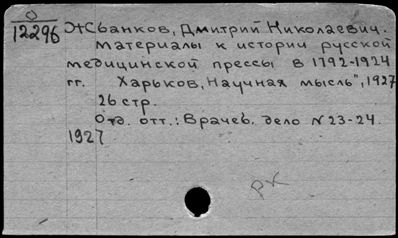 О
12296 Жбанков, Дмитрий Николаевич.
Материалы к истории русской
медицинской прессы в 1792-1924
гг. Харьков, Научная мысль", 1927
26 стр.
Отд. отт.: Врачеб. дело N 23-24.
1927
РК